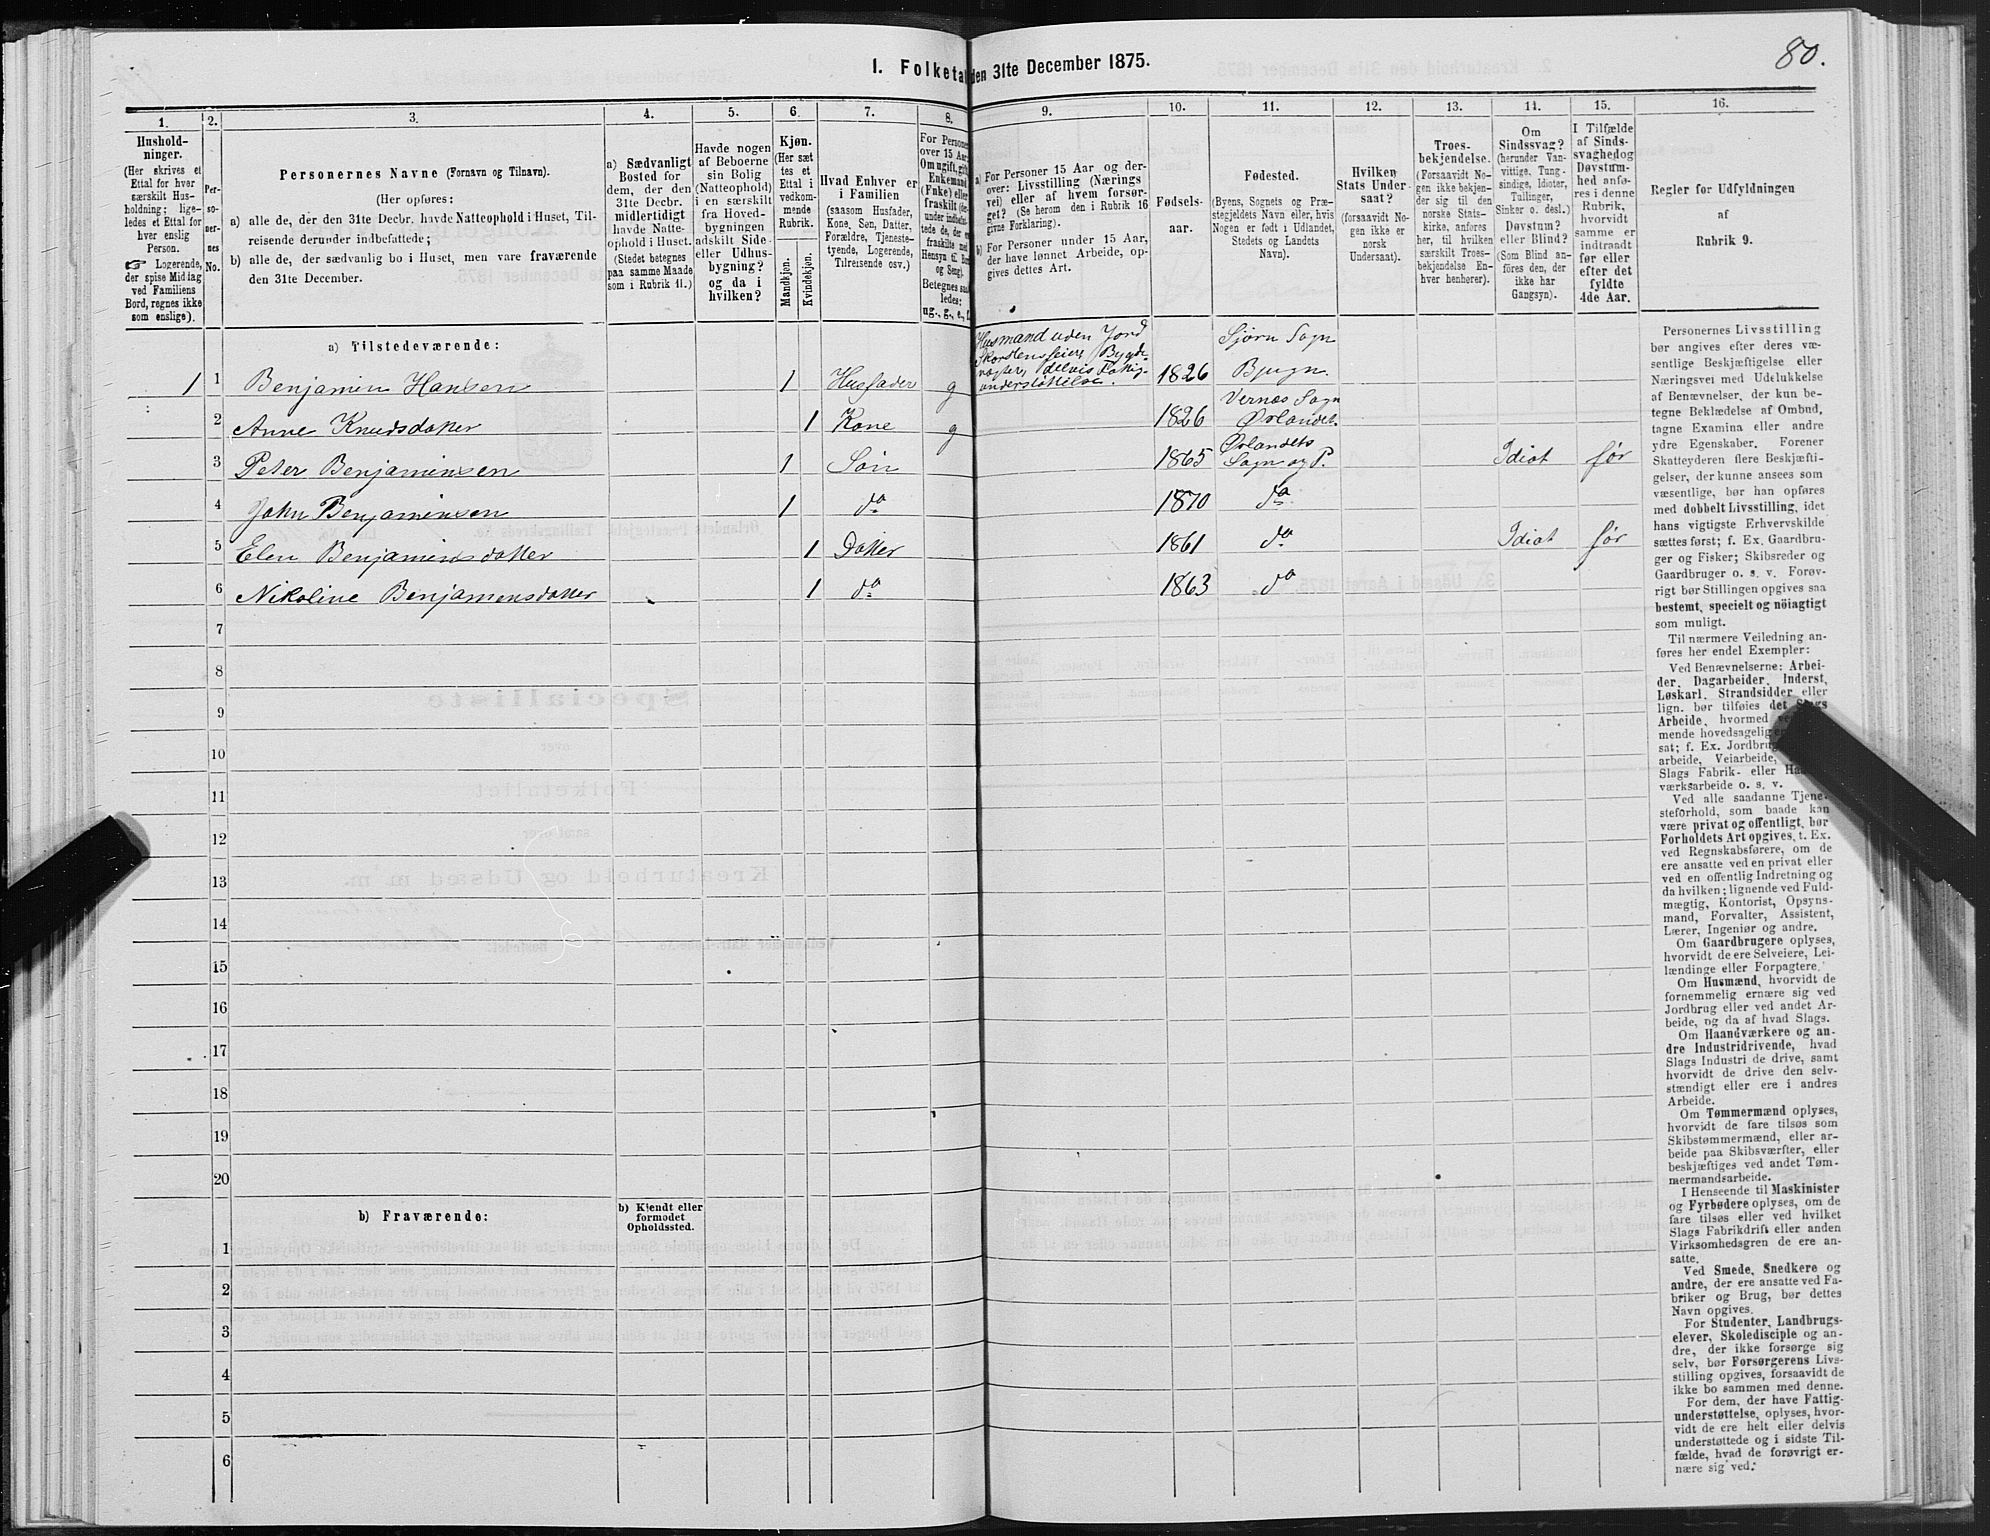 80.
1. Folketal den 31te December 1875.
1.
2.
3.
4.
5.
6.
7.
8.
9.
10.
11.
12.
13.
14.
15.
16.
Hushold-
ninger.
(Her skrives et
Ettal for hver
særskilt Hus-
holdning; lige-
ledes et Ettal for
hver enslig
Person.
☞ Logerende,
der spise Middag
ved Familiens
Bord, regnes ikke
som enslige).
Per-
so-
ner-
nes
No.
Personernes Navne (Fornavn og Tilnavn).
(Her opføres:
a) alle de, der den 31te Decbr. havde Natteophold i Huset, Til-
reisende derunder indbefattede;
b) alle de, der sædvanlig bo i Huset, men vare fraværende
den 31te December.
a) Sædvanligt
Bosted for
dem, der den
31te Decbr.
midlertidigt
havde Natte-
ophold i Huset.
(Stedet betegnes
paa samme Maade
som i Rubrik 11.)
Havde nogen
af Beboerne
sin Bolig
(Natteophold)
i en særskilt
fra Hoved-
bygningen
adskilt Side-
eller Udhus-
bygning?
og da i
hvilken?
Kjøn.
(Her sæt-
tes et
Ettal i
vedkom-
mende
Rubrik.
Mandkjøn.
Kvindekjøn.
Hvad Enhver er
i Familien
(saasom Husfader,
Kone, Søn, Datter,
Forældre, Tjeneste-
tyende, Logerende,
Tilreisende osv.)
For Personer
over 15 Aar
Om ugift, gift,
Enkemand
(Enke) eller
fraskilt
Betegnes saa-
ledes:
ug., g., e., f.
a) For Personer 15 Aar og der-
over: Livsstilling (Nærings
vei) eller af hvem forsør-
get? (Se herom den i Rubrik 16
givne Forklaring).
b) For Personer under 15 Aar,
der have lønnet Arbeide, op-
gives dettes Art.
Fødsels-
aar.
Fødested.
(Byens, Sognets og Præ-
stegjeldets Navn eller, hvis
Nogen er født i Udlandet,
Stedets og Landets
Navn).
Hvilken
Stats Under-
saat?
(forsaavidt No-
gen ikke er
norsk
Undersaat).
Troes-
bekjendelse.
(Forsaavidt No-
gen ikke bekjen-
der sig til den
norske Stats-
kirke, anføres
her, til hvilken
særskilt Troes-
bekjendelse En-
hver henhører).
Om
Sindssvag?
(herunder Van-
vittige, Tung-
sindige, Idioter,
Tullinger,
Sinker o. desl.)
Døvstum?
eller Blind?
(Som Blind an-
føres den, der
ikke har
Gangsyn).
I Tilfælde
af Sinds-
svaghed og
Døvstum-
hed anfø-
res i denne
Rubrik,
hvorvidt
samme er
indtraadt
før eller
efter det
fyldte
4de Aar.
Regler for Udfyldningen
af
Rubrik 9.
a) Tilstedeværende:
Husmand uden Jord
Skorstensfeier, Bygde-
vægter, delvis Fattig-
understøttelse.
1 1 Benjamin Hansen 1 Husfader g 1826 Sjørn Sogn Bjugn.
2 Anne Knudsdatter 1 Kone g 1826 Vernæs Sogn Ørlandet.
3 Peter Benjaminsen 1 Søn 1865 Ørlandets Sogn og P. Idiot før
4 John Benjaminsen 1 do 1870 do
5 Elen Benjaminsdatter 1 Datter 1861 do Idiot før
6 Nikoline Benjamensdatter 1 do 1863 do
7
8
9
10
11
12
13
14
15
16
17
18
19
20
b) Fraværende:
b) Kjendt eller
formodet
Opholdssted.
1
2
3
4
5
6
Personernes Livsstilling
bør angives efter deres væ-
sentlige Beskjæftigelse eller
Næringsvei med Udelukkelse
af Benævnelser, der kun be-
tegne Beklædelse af Ombud,
tagne Examina eller andre
ydre Egenskaber. Forener
Skatteyderen flere Beskjæfti-
gelser, der kunne ansees som
væsentlige, bør han opføres
med dobbelt Livsstilling, idet
hans vigtigste Erhvervskilde
sættes først; f. Ex. Gaardbru-
ger og Fisker; Skibsreder og
Gaardbruger o. s. v. Forøv-
rigt bør Stillingen opgives saa
bestemt, specielt og nöiagtigt
som muligt.
Til nærmere Veiledning an-
føres her endel Exempler:
Ved Benævnelserne: Arbei-
der, Dagarbeider, Inderst,
Løskarl, Strandsidder eller
lign. bør tilføies det Slags
Arbeide, hvormed
mende hovedsagelig
sat; f. Ex. Jordbrug
arbeide, Veiarbeide,
Slags Fabrik- eller
værksarbeide o. s. v.
Ved alle saadanne Tjene-
steforhold, som baade kan
være privat og offentligt, bør
Forholdets Art opgives, t. Ex.
ved Regnskabsførere, om de
ere ansatte ved en privat eller
ved en offentlig Indretning og
da hvilken; lignende ved Fuld-
mægtig, Kontorist, Opsyns-
mand, Forvalter, Assistent,
Lærer, Ingeniør og andre.
Om Gaardbrugere oplyses,
hvorvidt de ere Selveiere, Lei-
lændinge eller Forpagtere.
Om Husmænd, hvorvidt de
fornemmelig ernære sig ved
Jordbrug eller ved andet Ar-
beide, og da af hvad Slags.
Om Haandværkere og an-
dre Industridrivende, hvad
Slags Industri de drive, samt
hvorvidt de drive den selv-
stændigt eller ere i andres
Arbeide.
Om Tømmermænd oplyses,
hvorvidt de fare tilsøs som
Skibstømmermænd, eller ar-
beide paa Skibsværfter, eller
beskjæftiges ved andet Tøm-
mermandsarbeide.
I Henseende til Maskinister
og Fyrbødere oplyses, om de
fare tilsøs eller ved hvilket
Slags Fabrikdrift eller anden
Virksomhedsgren de ere an-
satte.
Ved Smede, Snedkere og
andre, der ere ansatte ved Fa-
briker og Brug, bør dettes
Navn opgives.
For Studenter, Landbrugs-
elever, Skoledisciple og an-
dre, der ikke forsørge sig
selv, bør Forsørgerens Livs-
stilling opgives, forsaavidt de
ikke bo sammen med denne.
For dem, der have Fattig-
understøttelse, oplyses, hvor-
vidt de ere helt eller delvis
understøttede og i sidste Til-
fælde, hvad de forøvrigt er-
nære sig ved.